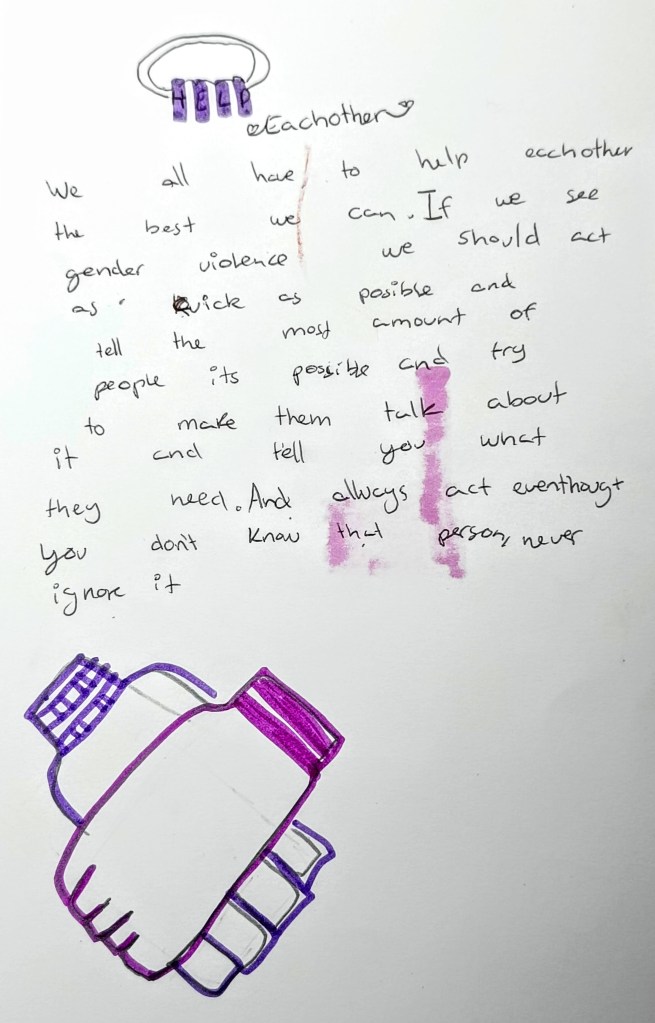 HELP
Eachother
We all have to help eachother
the best we can. If we see
gender violence we should act
as quick as posible and
tell the most amount of
people its possible and try
to make them talk about
it and tell you what
they need. And always act eventhougt
you don't know that person, never
ignore it